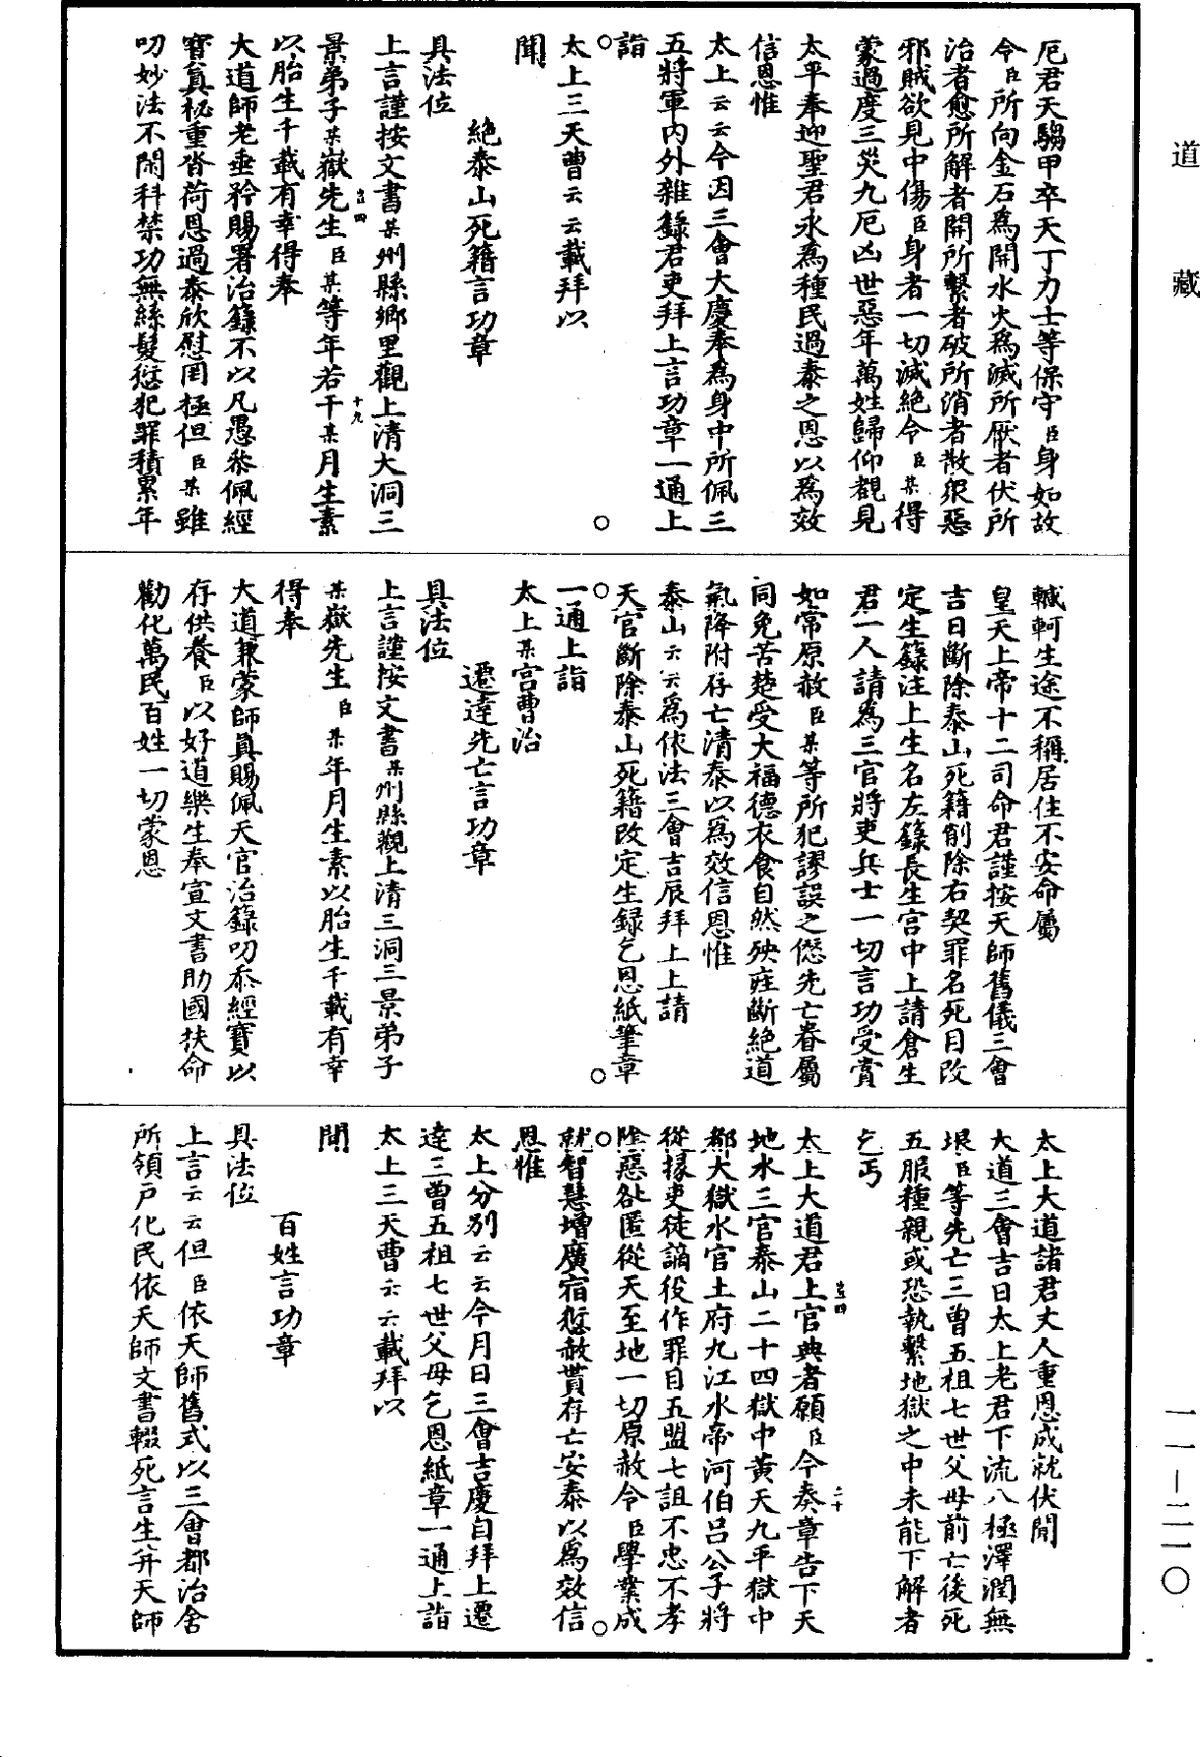 道藏
厄君天騶甲卒天丁力士等保守臣身如故
令臣所向金石爲開水火爲滅所厭者伏所
治者愈所解者開所繫者破所消者散衆惡
邪賊欲見中傷臣身者一切滅絕令臣某得
蒙過度三災九厄凶世惡年萬姓歸仰覩見
太平奉迎聖君永爲種民過泰之恩以爲效
信恩惟
太上云云今因三會大慶奉爲身中所佩三
五將軍內外雜籙君吏拜上言功章一通上
詣
太上三天曹云云載拜以
聞
絕泰山死籍言功章
具法位
上言謹按文書某州縣鄉里觀上清大洞三
景弟子某嶽先生臣某等年若干某月生素
以胎生千載有幸得奉
大道師老垂矜賜署治籙不以凡愚忝佩經
寶眞秘重沓荷恩過泰欣慰罔極但臣某雖
叨妙法不閑科禁功無絲髮愆犯罪積累年
轗軻生途不稱居住不安命屬
皇天上帝十二司命君謹按天師舊儀三會
吉日斷除泰山死籍削除右契罪名死目改
定生籙注上生名左籙長生宮中上請倉生
君一人請爲三官將吏兵士一切言功受賞
如常原赦臣某等所犯謬誤之愆先亡眷屬
同免苦楚受大福德衣食自然殃疰斷絕道
氣降附存亡清泰以爲效信恩惟
泰山云云爲依法三會吉辰拜上上請
天官斷除泰山死籍改定生錄乞恩紙筆章
一通上詣
太上某宮曹治
遷達先亡言功章
具法位
上言謹按文書某州縣觀上清三洞三景弟子
某嶽先生臣某年月生素以胎生千載有幸
得奉
大道兼蒙師眞賜佩天官治籙叨忝經寶以
存供養臣以好道樂生奉宣文書助國扶命
勸化萬民百姓一切蒙恩
太上大道諸君丈人重恩成就伏聞
大道三會吉日太上老君下流八極澤潤無
垠臣等先亡三曾五祖七世父母前亡後死
五服種親或恐執繫地獄之中未能下解者
乞丐
太上大道君上官典者願臣今奏章告下天
地水三官泰山二十四獄中黃天九平獄中
都大獄水官土府九江水帝河伯呂公子將
從掾吏徒謫役作罪目五盟七詛不忠不孝
陰惡咎匿從天至地一切原赦令臣學業成
就智慧增廣宿愆赦貰存亡安泰以爲效信
恩惟
太上分別云云今月日三會吉慶自拜上遷
達三曾五祖七世父母乞恩紙章一通上詣
太上三天曹云云載拜以
聞
百姓言功章
具法位
上言云云但臣依天師舊式以三會都治舍
所領戶化民依天師文書輟死言生幷天師
一一—二一〇